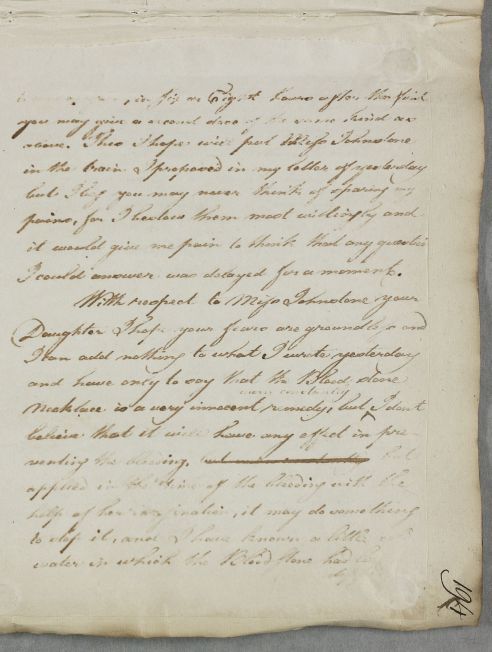 in six or Eight hours after the first
you may give a second dose of the same kind as
above. This I hope will put Miss Johnstone
in the train I proposed in my letter of yesterday
but I beg you may never think of sparing my
pains, for I bestow them most willingly and
it would give me pain to think that any question
I could answer was delayed for a moment.
With respect to Miss Johnstone your
Daughter I hope your fears are groundless and
I can add nothing to what I wrote yesterday
and have only to say that the Blood stone
worn constantly
Necklace is a very innocent remedy, but I dont
believe that it will have any effect in pre-
venting the bleeding, but
applied in the time of the bleeding with the
help of her imagination, it may do something
to stop it, and I have known a little
water in which the Blood stone had
194